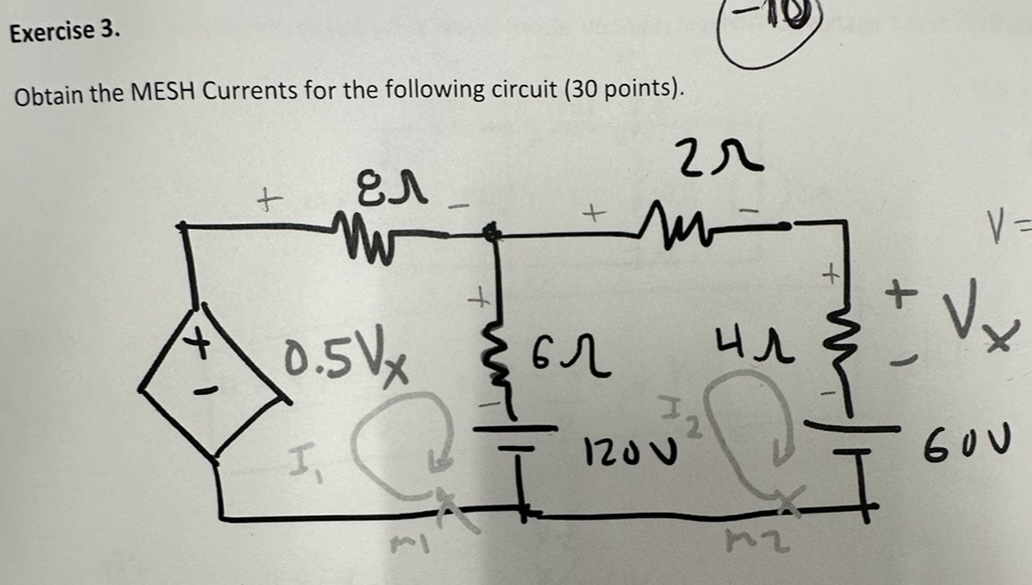 -10
Exercise 3.
Obtain the MESH Currents for the following circuit (30 points).
2Ω
+ 8Ω - + -
V=
+ + Vx
+ + 0.5Vx 6Ω 4Ω -
- - -
I₁ I₂
120V 60V
m1 m2